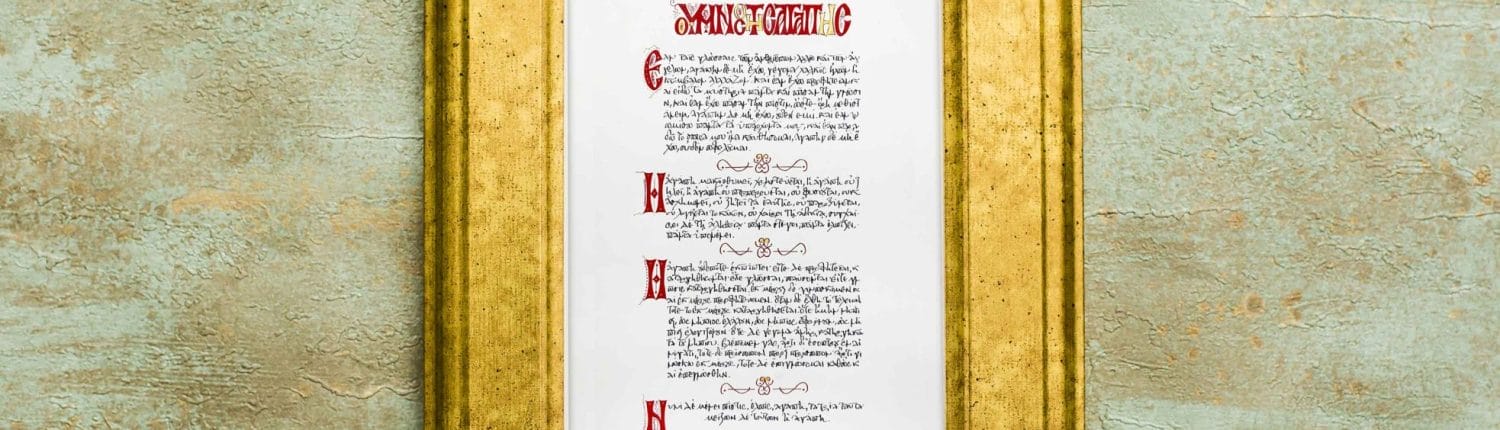 Ο ΥΜΝΟϹ ΤΗϹ ΑΓΑΠΗϹ
Ἐὰν ταῖς γλώσσαις τῶν ἀνθρώπων λαλῶ καὶ τῶν ἀγ
γέλων, ἀγάπην δὲ μὴ ἔχω, γέγονα χαλκὸς ἠχῶν ἢ
κύμβαλον ἀλαλάζον. καὶ ἐὰν ἔχω προφητείαν κ
αὶ εἰδῶ τὰ μυστήρια πάντα καὶ πᾶσαν τὴν γνῶσι
ν, καὶ ἐὰν ἔχω πᾶσαν τὴν πίστιν, ὥστε ὄρη μεθιστ
άνειν, ἀγάπην δὲ μὴ ἔχω, οὐδέν εἰμι. καὶ ἐὰν ψ
ωμίσω πάντα τὰ ὑπάρχοντά μου, καὶ ἐὰν παρα
δῶ τὸ σῶμά μου ἵνα καυθήσωμαι, ἀγάπην δὲ μὴ ἔ
χω, οὐδὲν ὠφελοῦμαι.
Ἡ ἀγάπη μακροθυμεῖ, χρηστεύεται, ἡ ἀγάπη οὐ ζ
ηλοῖ, ἡ ἀγάπη οὐ περπερεύεται, οὐ φυσιοῦται, οὐκ
ἀσχημονεῖ, οὐ ζητεῖ τὰ ἑαυτῆς, οὐ παροξύνεται,
οὐ λογίζεται τὸ κακόν, οὐ χαίρει τῇ ἀδικίᾳ, συγχαί
ρει δὲ τῇ ἀληθείᾳ· πάντα στέγει, πάντα ἐλπίζει,
πάντα ὑπομένει.
Ἡ ἀγάπη οὐδέποτε ἐκπίπτει· εἴτε δὲ προφητεῖαι, κ
αταργηθήσονται· εἴτε γλῶσσαι, παύσονται· εἴτε γν
ῶσις καταργηθήσεται. ἐκ μέρους δὲ γινώσκομεν κ
αὶ ἐκ μέρους προφητεύομεν· ὅταν δὲ ἔλθῃ τὸ τέλειον,
τότε τὸ ἐκ μέρους καταργηθήσεται. ὅτε ἤμην νήπι
ος, ὡς νήπιος ἐλάλουν, ὡς νήπιος ἐφρόνουν, ὡς νή
πιος ἐλογιζόμην· ὅτε δὲ γέγονα ἀνήρ, κατήργηκα
τὰ τοῦ νηπίου. βλέπομεν γὰρ ἄρτι δι' ἐσόπτρου ἐν αἰ
νίγματι, τότε δὲ πρόσωπον πρὸς πρόσωπον· ἄρτι γι
νώσκω ἐκ μέρους, τότε δὲ ἐπιγνώσομαι καθὼς κ
αὶ ἐπεγνώσθην.
Νυνὶ δὲ μένει πίστις, ἐλπίς, ἀγάπη, τὰ τρία ταῦτα·
μείζων δὲ τούτων ἡ ἀγάπη.